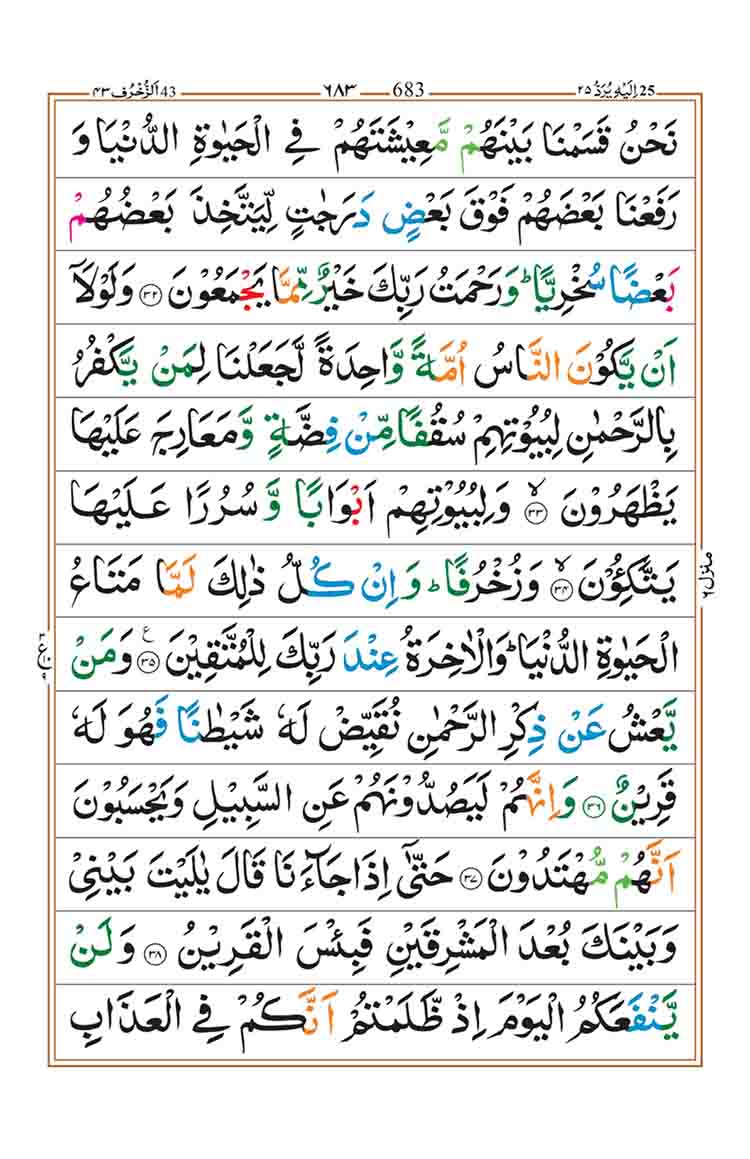 25 اِلَیْهِ یُرَدُّ ۲۵
683 ۶۸۳
43 اَلزُّخْرُف ۴۳
نَحْنُ قَسَمْنَا بَیْنَهُمْ مَّعِیْشَتَهُمْ فِی الْحَیٰوةِ الدُّنْیَا وَ
رَفَعْنَا بَعْضَهُمْ فَوْقَ بَعْضٍ دَرَجٰتٍ لِّیَتَّخِذَ بَعْضُهُمْ
بَعْضًا سُخْرِیًّا ؕ وَرَحْمَتُ رَبِّكَ خَیْرٌ مِّمَّا یَجْمَعُوْنَ ۝۳۲ وَلَوْلَاۤ
اَنْ یَّكُوْنَ النَّاسُ اُمَّةً وَّاحِدَةً لَّجَعَلْنَا لِمَنْ یَّكْفُرُ
بِالرَّحْمٰنِ لِبُیُوْتِهِمْ سُقُفًا مِّنْ فِضَّةٍ وَّمَعَارِجَ عَلَیْهَا
یَظْهَرُوْنَ ۝۳۳ۙ وَلِبُیُوْتِهِمْ اَبْوَابًا وَّ سُرُرًا عَلَیْهَا
یَتَّكِـُٔوْنَ ۝۳۴ۙ وَزُخْرُفًا ؕ وَ اِنْ كُلُّ ذٰلِكَ لَمَّا مَتَاعُ
الْحَیٰوةِ الدُّنْیَا ؕ وَالْاٰخِرَةُ عِنْدَ رَبِّكَ لِلْمُتَّقِیْنَ ۝۳۵ ع وَمَنْ
یَّعْشُ عَنْ ذِكْرِ الرَّحْمٰنِ نُقَیِّضْ لَهٗ شَیْطٰنًا فَهُوَ لَهٗ
قَرِیْنٌ ۝۳۶ وَاِنَّهُمْ لَیَصُدُّوْنَهُمْ عَنِ السَّبِیْلِ وَیَحْسَبُوْنَ
اَنَّهُمْ مُّهْتَدُوْنَ ۝۳۷ حَتّٰۤی اِذَا جَآءَنَا قَالَ یٰلَیْتَ بَیْنِیْ
وَبَیْنَكَ بُعْدَ الْمَشْرِقَیْنِ فَبِئْسَ الْقَرِیْنُ ۝۳۸ وَلَنْ
یَّنْفَعَكُمُ الْیَوْمَ اِذْ ظَّلَمْتُمْ اَنَّكُمْ فِی الْعَذَابِ
منزل ۶